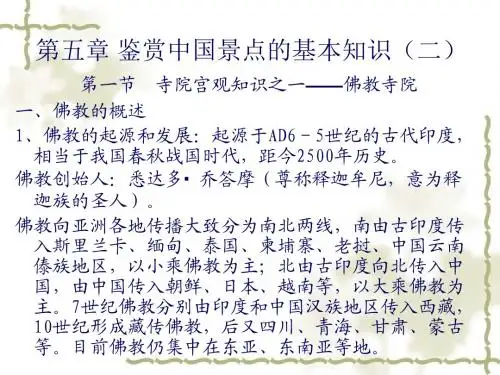 第五章 鉴赏中国景点的基本知识（二）
第一节　寺院宫观知识之一——佛教寺院
一、佛教的概述
1、佛教的起源和发展：起源于AD6－5世纪的古代印度，
相当于我国春秋战国时代，距今2500年历史。
佛教创始人：悉达多▪乔答摩（尊称释迦牟尼，意为释
迦族的圣人）。
佛教向亚洲各地传播大致分为南北两线，南由古印度传
入斯里兰卡、缅甸、泰国、柬埔寨、老挝、中国云南
傣族地区，以小乘佛教为主；北由古印度向北传入中
国，由中国传入朝鲜、日本、越南等，以大乘佛教为
主。7世纪佛教分别由印度和中国汉族地区传入西藏，
10世纪形成藏传佛教，后又四川、青海、甘肃、蒙古
等。目前佛教仍集中在东亚、东南亚等地。